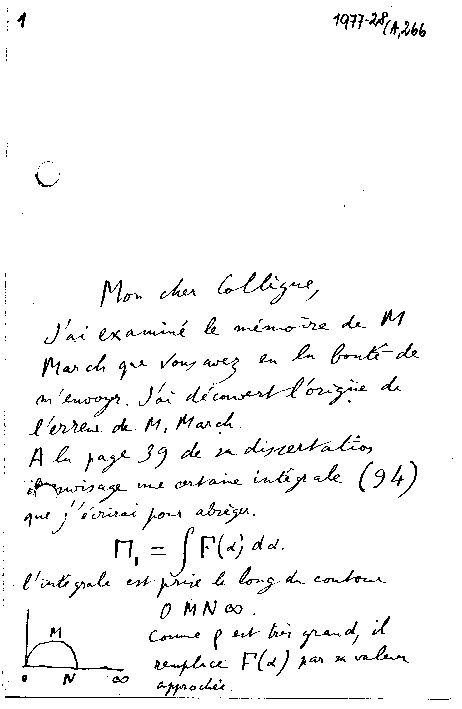 1
1977-28/A,266
Mon cher Collègue,
J'ai examiné le mémoire de M
March que vous avez eu la bonté de
m'envoyer. J'ai découvert l'origine de
l'erreur de M. March.
A la page 39 de sa dissertation
il envisage une certaine intégrale (94)
que j'écrirai pour abréger.
Π₁ = ∫ F(α) dα.
l'intégrale est prise le long du contour
O M N ∞.
Comme ρ est très grand, il
remplace F(α) par sa valeur
approchée.
M
o N ∞